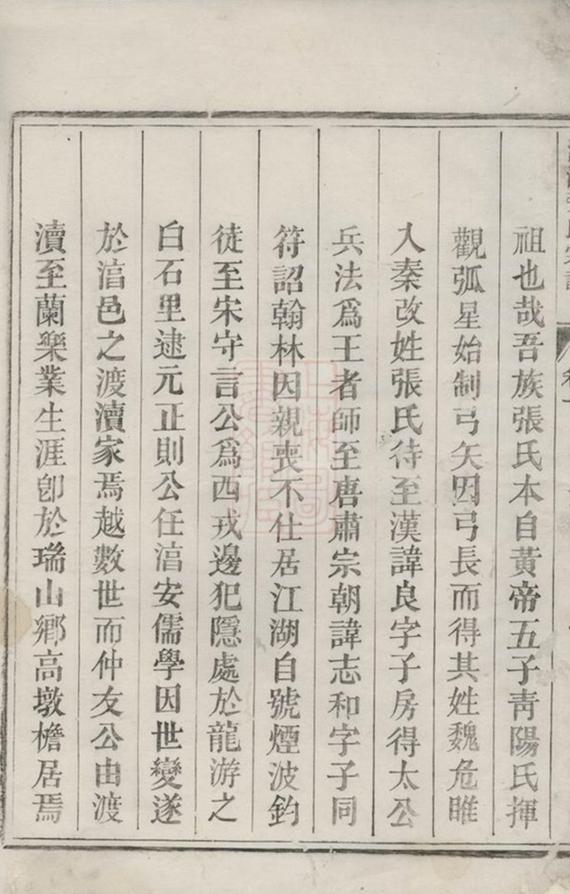 祖也哉吾族張氏本自黃帝五子靑陽氏揮
觀弧星始制弓矢因弓長而得其姓魏危睢
入秦改姓張氏待至漢諱良字子房得太公
兵法爲王者師至唐肅宗朝諱志和字子同
符詔翰林因親喪不仕居江湖自號煙波釣
徒至宋守言公爲西戎邊犯隱處於龍游之
白石里逮元正則公任湇安儒學因世變遂
於湇邑之渡瀆家焉越數世而仲友公由渡
瀆至蘭樂業生涯卽於瑞山鄉高墩檐居焉